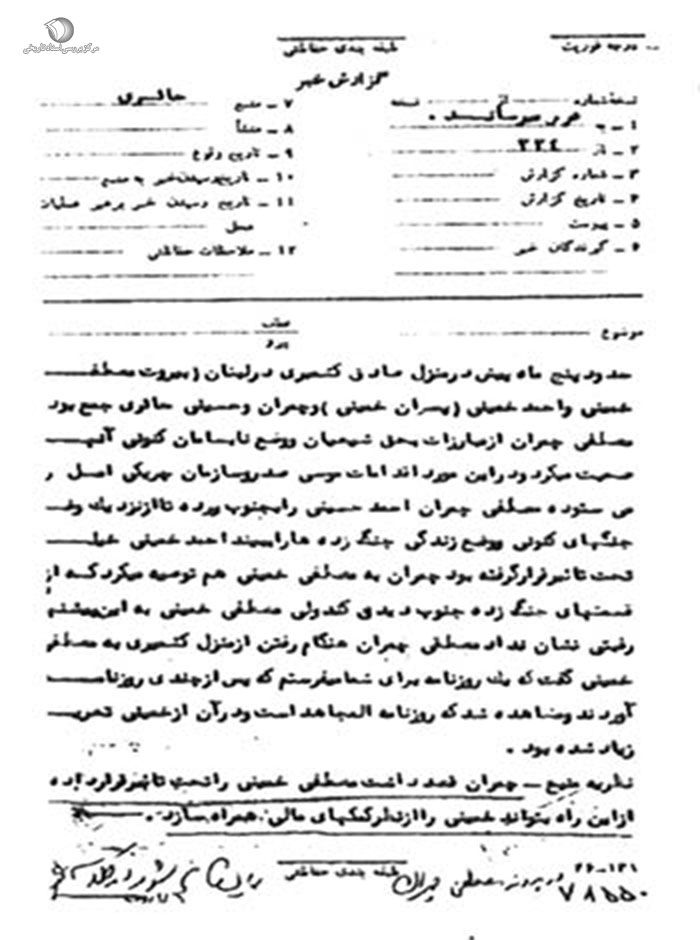 مرکز بررسی اسناد تاریخی
درجه فوریت
طبقه بندی حفاظتی
گزارش خبر
نسخه شماره از نسخه
۱ ـ به عرض میرساند .
۲ ـ از ۳۳۴
۳ ـ شماره گزارش
۴ ـ تاریخ گزارش
۵ ـ پیوست
۶ ـ گیرندگان خبر
۷ ـ منبع حائری
۸ ـ منشأ
۹ ـ تاریخ وقوع
۱۰ ـ تاریخ رسیدن خبر به منبع
۱۱ ـ تاریخ رسیدن خبر برهبر عملیات
محل
۱۲ ـ ملاحظات حفاظتی
موضوع
عطف
پیرو
حدود پنج ماه پیش در منزل صادق کشمیری در لبنان (بیروت مصطفی
خمینی واحمد خمینی (پسران خمینی) وچمران وحسینی حائری جمع بود
مصطفی چمران از مبارزات بحق شیعیان ووضع نابسامان کنونی آنها
صحبت میکرد ودر این مورد اقدامات موسی صدر وسازمان چریکی امل ر
می ستوده مصطفی چمران احمد حسینی رابجنوب برده تا از نزدیک وضع
جنگهای کنونی ووضع زندگی جنگ زده ها راببیند احمد خمینی خیلی
تحت تاثیر قرار گرفته بود چمران به مصطفی خمینی هم توصیه میکرد که از
قسمتهای جنگ زده جنوب دیدی کند ولی مصطفی خمینی به این پیشنهاد
رغبتی نشان نداد مصطفی چمران هنگام رفتن از منزل کشمیری به مصطفی
خمینی گفت که یک روزنامه برای شما میفرستم که پس از چندی روزنامه
آوردند ومشاهده شد که روزنامه المجاهد است ودر آن از خمینی تعریف
زیاد شده بود .
نظریه منبع ـ چمران قصد داشت مصطفی خمینی را تحت تاثیر قرار داده
از این راه بتواند خمینی را از نظر کمکهای مالی همراه سازد .
طبقه بندی حفاظتی
۲۶-۱۳۱
در پرونده مصطفی چمران
۷۸۵۵۰